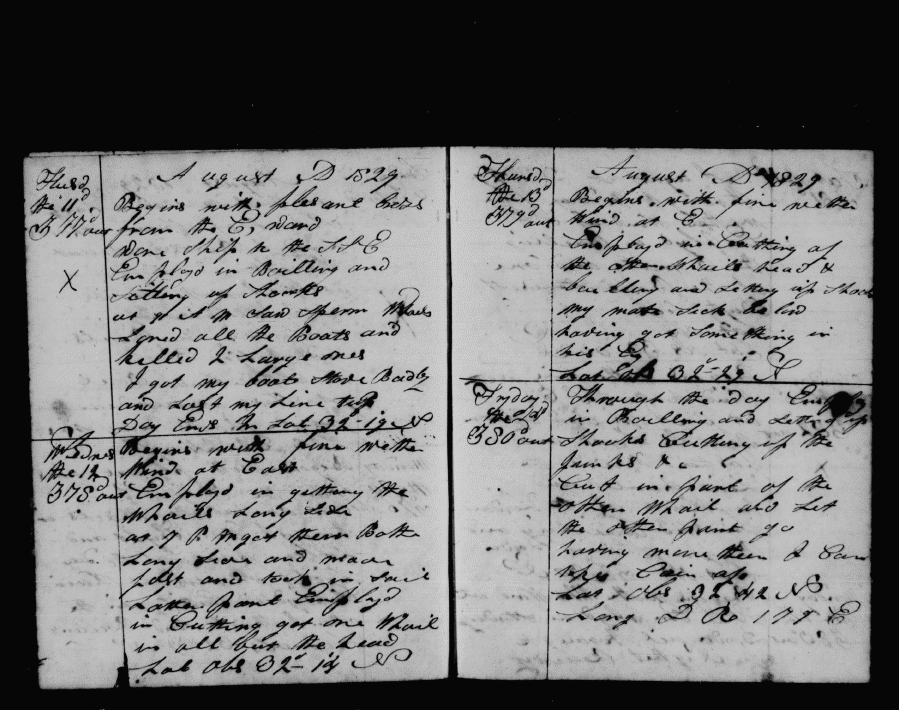 August D 1829
Thusd
the 11d
377d out
Begins with plesant bres
from the E, ward
Wore Ship to the SSE
Employd in Boilling and
Setting up Shooks
at M Saw Sperm Whails
Lored all the Boats and
killed 2 Large ones
I got my boat Stove Badly
and Lost my Line
Day Ends in Lat 32-19 N
X
Wednes
the 12
378d out
Begins with fine wether
Wind at East
Employd in getting the
Whails Long Side
at 7 P M got them Both
Long Side and made
fast and took in Sail
Latter part Employd
in Cutting got one Whail
in all but the head
Lat Obs 32-14 N
August D 1829
Thursd
the 13
379d out
Begins with fine wether
Wind at E
Employd in Cutting of
the other Whails head &
boilling and Setting up Shook
my mate Sick
having got Something in
his Ey
Lat Obs 32-29 N
Fryday
the 14
380d out
Through the day Employ
in Boilling and Setting up
Shooks Cutting up the
Junks &c
Cut in part of the
other Whail and Let
the other part go
having more then I Can
take Cair of
Lat Obs 32 42 N
Long D R 179 E